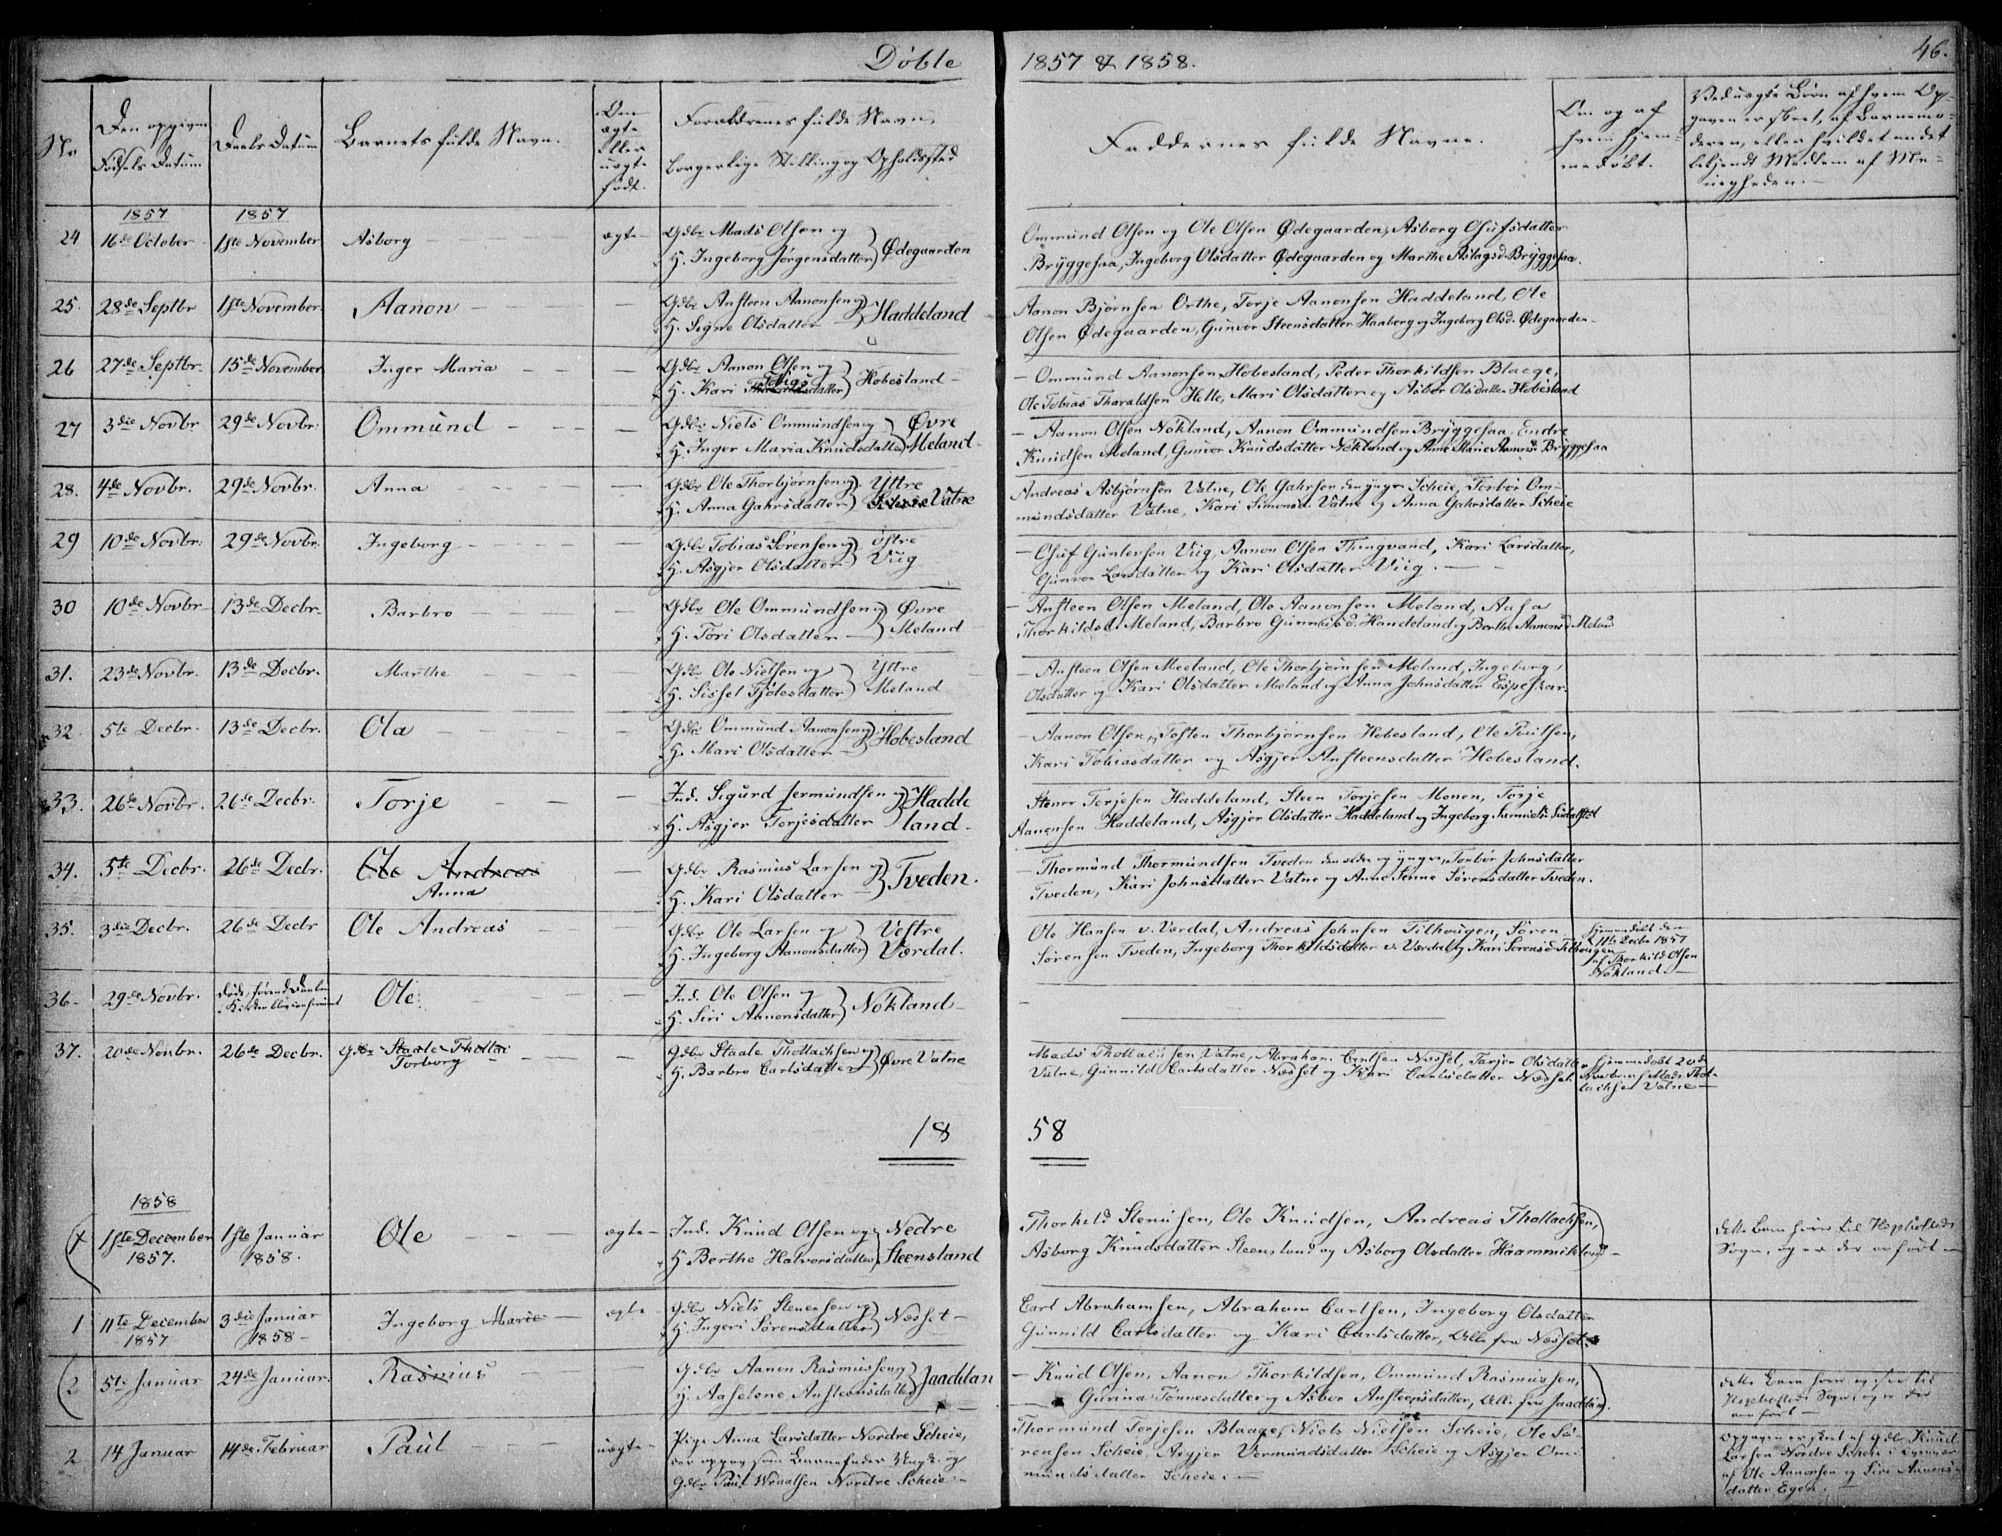 Døbte
1857 & 1858.
46.
No
Den opgivne Fødsels Datum
Daabs Datum
Barnets fulde Navn.
Om ægte eller uægte født.
Forældrenes fulde Navn, borgerlige Stilling og Opholdssted
Faddernes fulde Navne.
Om og af hvem hjemmedøbt.
Ved uægte Børn af hvem Opgaven er skeet, af Barnemoderen, eller hvilket andet bekjendt Medlem af Menigheden.
1857
1857
24 16de October 1ste November Asborg ægte
Gdbr Mads Olsen og
H. Ingeborg Jørgensdatter } Ødegaarden
Ommund Olsen og Ole Olsen Ødegaarden, Asborg Olufsdatter
Bryggesaa, Ingeborg Olsdatter Ødegaarden og Marthe Aslagsd. Bryggesaa.
25. 28de Septbr 1ste November. Aanon
Gdbr Ansteen Aanonsen og
H. Signe Olsdatter } Haddeland
Aanon Bjørnsen Orthe, Torje Aanonsen Haddeland, Ole
Olsen Ødegaarden, Gunvor Steensdatter Haaberg og Ingeborg Olsd. Ødegaarden
26 27de Septbr. 15de November Inger Maria
Gdbr Aanon Olsen og
H. Kari Tobias datter } Hobesland
Ommund Aanonsen Hobesland, Peder Thorkildsen Blaege,
Ole Tobias Tharaldsen Helle, Mari Olsdatter og Asbor Olsdatter Hobesland
27 3die Novbr 29de Novbr. Ommund
Gdbr Niels Ommundsen og
H. Inger Maria Knudsdatter } Øvre Meland
Aanon Olsen Nökland, Aanon Ommundsen Bryggesaa, Endre
Knudsen Meland, Gunvor Knudsdatter Nökland og Anne Marie Aanonsd. Bryggesaa
28. 4de Novbr. 29de Novbr. Anna
Gdbr Ole Thorbjørnsen og
H. Anna Gahrsdatter } Yttre Vatne
Andreas Asbjørnsen Vatne, Ole Gahrsen den yngre Scheie, Torbor Om-
mundsdatter Vatne, Kari Simonsd. Vatne og Anna Gahrsdatter Scheie
29 10de Novbr. 29de Novbr. Ingeborg
Gdbr Tobias Sørensen og
H. Asgjer Olsdatter } östre Viig
Oluf Guntersen Viig, Aanon Olsen Tungvand, Kari Larsdatter,
Gunvor Larsdatter og Kari Olsdatter Viig.
30 10de Novbr 13de Decbr. Barbro
Gdbr Ole Ommundsen og
H. Tori Olsdatter } Øvre Meland
Ansteen Olsen Meland, Ole Aanonsen Meland, Aasa
Thorkildsd. Meland, Barbro Gunnildsd. Handeland og Berthe Aanonsd. Meland
31. 23de Novbr. 13de Decbr. Marthe
Gdbr Ole Nielsen og
H. Sissel Tjölesdatter } Yttre Meland
Ansteen Olsen Meeland, Ole Thorbjørnsen Meland, Ingeborg
Olsdatter og Kari Olsdatter Meland og Anna Johnsdatter Espeskar.
32. 5te Decbr. 13de Decbr. Ola
Gdbr Ommund Aanonsen og
H. Mari Olsdatter } Hobesland
Aanon Olsen, Tosten Thorbjørnsen Hobesland, Ole Puilsen,
Kari Tobiasdatter og Asgjer Ansteensdatter Hobesland.
33. 26de Novbr. 26de Decbr. Torje
Ind. Sigurd Jermundsen og
H. Asgjer Torjesdatter } Haddeland.
Stener Torjesen Haddeland, Steen Torjesen Monen, Torje
Aanonsen Haddeland, Asgjer Olsdatter Haddeland og Ingeborg
34. 5te Decbr. 26de Decbr. Ole Andreas
Anna
Gdbr Rasmus Larsen og
H. Kari Olsdatter } Tveden.
Thormund Thormundsen Tveden den ældre og yngre, Torbor Johnsdatter
Tveden, Kari Johnsdatter Vatne og Anne Sørensdatter Tveden.
35. 3die Decbr. 26de Decbr Ole Andreas
Gdbr Ole Larsen og
H. Ingeborg Aanonsdatter } Vestre Værdal.
Ole Hansen v. Værdal, Andreas Johnsen Tilhougen, Sören
Sørensen Tveden, Ingeborg Thorkildsdatter v. Værdal og Kari Sørensd. Tilhougen
Hjemmedøbt den 11te Decbr 1857 af Thorkild Olsen Nökland.
36. 29de Novbr. Ole
Ind. Ole Olsen og
H. Siri Aanonsdatter } Nökland
37. 20de Novbr. 26de Decbr. Gdbr Staale Thollai
Torborg
Gdbr Staale Thollachsen og
H. Barbro Carlsdatter } Øvre Vatne
Mads Thollachsen Vatne, Abraham Carlsen Næsset, Tarjer Olsdatter
Vatne, Gunnild Carlsdatter Næsset og Kari Carlsdatter Næsset.
Hjemmedøbt 20de Novbr af Mads Thollachsen Vatne
18 58
1858
1 1ste December 1857. 1ste Januar 1858. Ole ægte
Ind. Knud Olsen og
H Berthe Halvorsdatter } Nedre Steensland
Thorkeld Stenisen, Ole Knudsen, Andreas Thollachsen,
Asborg Knudsdatter Steensland og Asborg Olsdatter Haammikland
dette Barn hører til Hægebostads Sogn, og er der anført
1 11te December 1857 3die Januar 1858 Ingeborg Marie ægte
Gdbr Niels Stenersen og
H. Ingeri Sørensdatter } Næsset
Carl Abrahamsen, Abraham Carlsen, Ingeborg Olsdatter
Gunnild Carlsdatter og Kari Carlsdatter, Alle fra Næsset.
2 5te Januar 24de Januar. Rasmus
Gdbr Aanon Rasmussen og
H. Aaselene Ansteensdatter } Jaaddan
Knud Olsen, Aanon Thorkildsen, Ommund Rasmussen,
Gurina Tønnesdatter og Asbor Ansteensdatter, Alle fra Jaaddan.
dette Barn hører ogsaa til Hegebostads Sogn og er der anført
2 14 Januar 14de Februar Paul uægte
Pige Anna Larsdatter Nordre Scheie,
der opgav som Barnefader Ungk. og
Gdbr Paul Wraalsen Nordre Scheie
Thormund Torjesen Blaage, Niels Nielsen Scheie, Ole Sö-
rensen Scheie, Asgjer Vermundsdatter Scheie og Asgjer Om-
mundsdatter Scheie.
Opgaven er skeet af Gdbr Knud Larsen Nordre Scheie i Overvær af Ole Aanonsen og Siri Aanonsdatter Egen.